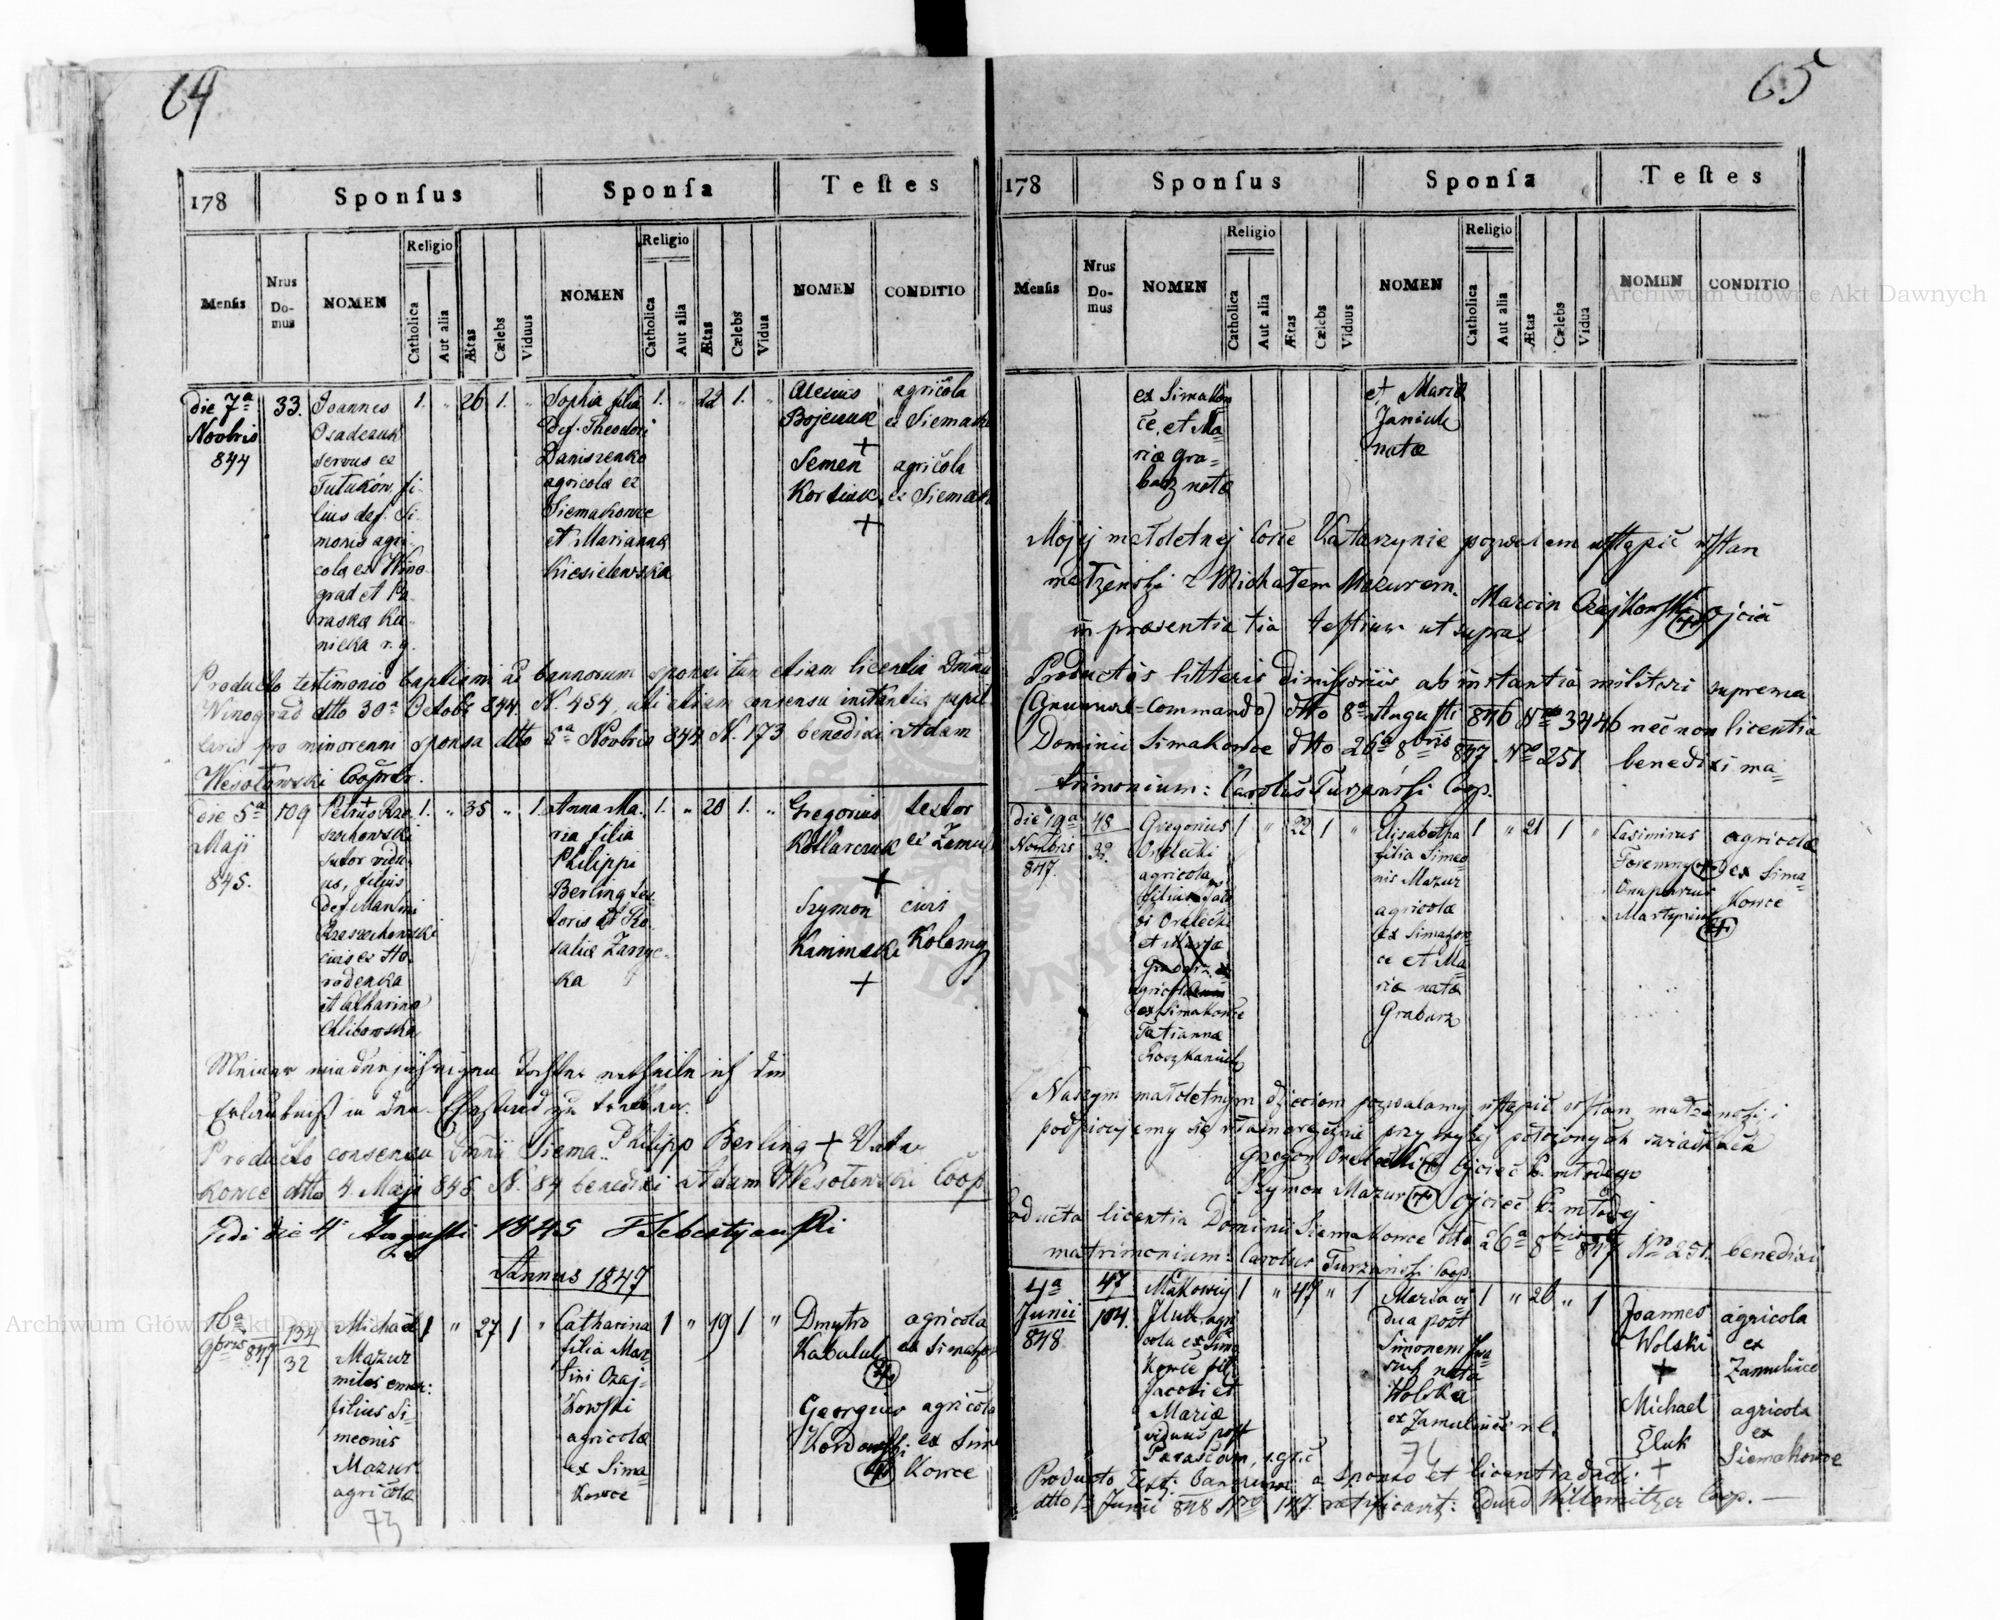 64
178
Sponſus
Sponſa
Teſtes
Menſis
Nrus Domus
NOMEN
Religio
Catholica
Aut alia
Ætas
Cælebs
Viduus
NOMEN
Religio
Catholica
Aut alia
Ætas
Cælebs
Vidua
NOMEN
CONDITIO
die 7ª
Novbris
844
33.
Joannes
servus ex
Tutukow fi-
lius def. Si-
monis agri-
cola ex Wino
grad et Pa-
raska Ka-
nicka r. g.
1. " 26 1. "
Sophia filia
def. Theodori
Daniszenko
agricola ex
Siemakowce
et Marianna
Kisielewska
1. " 22 1. "
Alexius
+
Semen
+
agricola
ex Siemak
agricola
ex Siemak
Producto testimonio baptismi ac bannorum sponsi tum etiam licentia Dominii
Winograd dtto 30ª Octobr 844 N. 454, uti etiam consensu instantia pupil
laris pro minorenni sponsa dtto 5ª Novbris 844 N. 173 benedixi Adam
Wesołowski Cooprtr.
die 5ª
Maji
845.
109
Petrus Rze-
szechowski
sutor vidu-
us, filius
def. Martini
Rzeszechowski
civis ex Ho-
rodenka
et Catharina
Chlibowska
1. " 35 " 1.
Anna Ma-
ria filia
Philippi
Berling tex
toris et Ro-
salia Zaryc-
ka
1. " 20 1. "
Gregorius
Kotlarczuk
+
Szymon
Kaminski
+
textor
ex Zamul
civis
Kolomy
Meiner minderjährigen Tochter ertheile ich die
Erlaubniß in den Ehestand zu treten.
Philipp Berling + Vater
Producto consensu Dominii Siema-
kowce dtto 4. Maji 845 N. 84 benedixi Adam Wesołowski Coop
Vidi die 4ª Augusti 1845
Annus 1847
16ª
9bris 847
134
32
Michael
Mazur
miles emer:
filius Si-
meonis
Mazur
agricola
1 " 27 1 "
Catharina
filia Mar-
tini Czaj-
kowski
agricola
ex Sima
kowce
1 " 19 1 "
Dmytro
Georgius
agricola
ex Simako
agricola
ex Sima
kowce
73
65
178
Sponſus
Sponſa
Teſtes
Menſis
Nrus Domus
NOMEN
Religio
Catholica
Aut alia
Ætas
Cælebs
Viduus
NOMEN
Religio
Catholica
Aut alia
Ætas
Cælebs
Vidua
NOMEN
CONDITIO
ex Simakow
ce, et Ma-
ria Gra-
barz nata
et Maria
Janiuk
nata
Mojej małoletnej Córce Katarzynie pozwalam wstąpić w stan
małżenski z Michałem Mazurem. Marcin Czajkowski ojciec
in præsentia testium ut supra.
Productis litteris dimissoriis ab instantia militari suprema
(Armee-Commando) dtto 8ª Augusti 846 Nro 3446 nec non licentia
Dominii Simakowce dtto 26ª 8bris 847 Nro 251 benedixi ma-
trimonium: Carolus Turzański Coop.
die 19ª
Novbris
847.
48
Gregorius
agricola
1 " 22 1 "
ex Simakowce
Tatianna
Elisabetha
filia Simeo
nis Mazur
agricola
ex Simakow-
ce et Ma-
ria nata
Grabarz
1 " 21 1 "
Casimirus
Foremny
Onuphrius
agricola
ex Sima-
kowce
Naszym małoletnym dzieciom pozwalamy wstąpić w stan małżenski i
podpisujemy się własnoręcznie przy wyżej położonych swiadkach
ojciec P. młodego
Szymon Mazur ojciec P. młodej
Producta licentia Dominii Siemakowce dtto 26ª 8bris 847 Nro 251. benedixi
matrimonium: Carolus Turzański Coop.
4ª
Junii
848
47
104.
agri
cola ex Sima
kowce fil.
Jacobi et
Maria
viduus post
1 " 47 " 1
Maria vi-
dua post
Simonem
nata
Wolska
ex Zamulince r. l.
1 " 26 " 1
Joannes
Wolski
+
Michael
Eluk
+
agricola
ex
Zamulince
agricola
ex
Siemakowce
74
Producto Test: bannorum a sponso et licentia
dtto Junii 848 Nro 147 ratificavit: Coop.
Archiwum Główne Akt Dawnych
Archiwum Główne Akt Dawnych